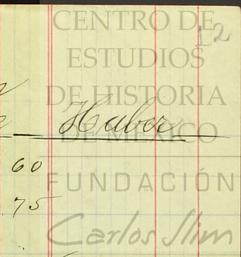 CENTRO DE
12
ESTUDIOS
DE HISTORIA
Haber
DE MÉXICO
60
FUNDACIÓN
75
Carlos Slim